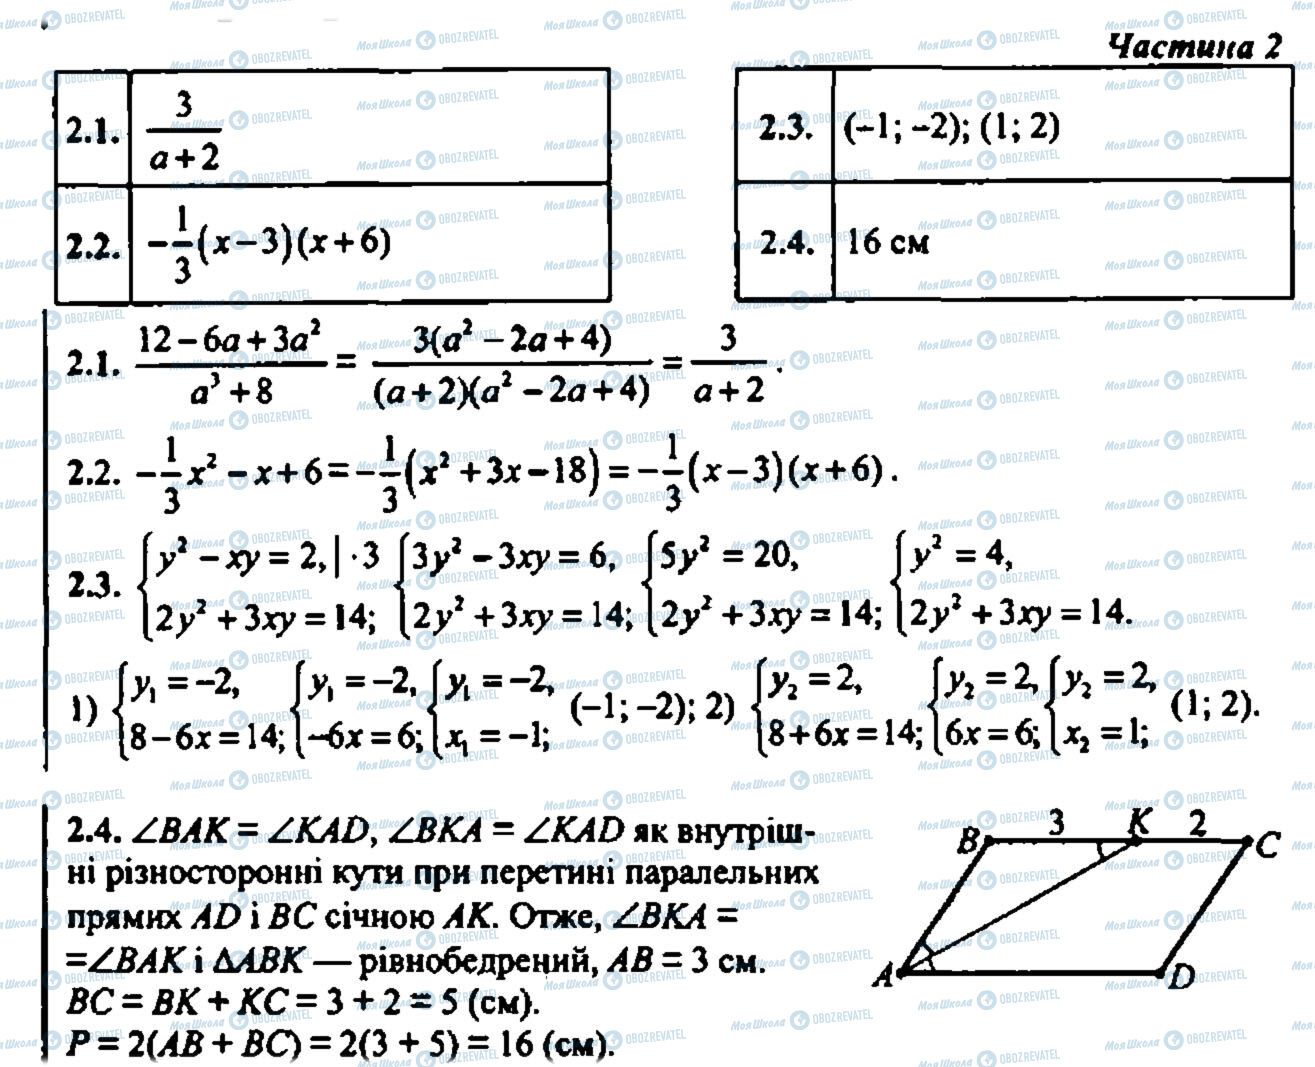 Частина 2
2.1. 3/(a + 2)
2.2. −1/3(x − 3)(x + 6)
2.3. (−1; −2); (1; 2)
2.4. 16 см
2.1. (12 − 6a + 3a²)/(a³ + 8) = 3(a² − 2a + 4)/((a + 2)(a² − 2a + 4)) = 3/(a + 2).
2.2. −1/3x² − x + 6 = −1/3(x² + 3x − 18) = −1/3(x − 3)(x + 6).
2.3. {y² − xy = 2, | · 3 {3y² − 3xy = 6, {5y² = 20, {y² = 4,
2y² + 3xy = 14; 2y² + 3xy = 14; 2y² + 3xy = 14; 2y² + 3xy = 14.
1) {y₁ = −2, {y₁ = −2, {y₁ = −2, (−1; −2); 2) {y₂ = 2, {y₂ = 2, {y₂ = 2, (1; 2).
8 − 6x = 14; −6x = 6; x₁ = −1; 8 + 6x = 14; 6x = 6; x₂ = 1;
2.4. ∠BAK = ∠KAD, ∠BKA = ∠KAD як внутріш-
ні різносторонні кути при перетині паралельних
прямих AD і BC січною AK. Отже, ∠BKA =
=∠BAK і ΔABK — рівнобедрений, AB = 3 см.
BC = BK + KC = 3 + 2 = 5 (см).
P = 2(AB + BC) = 2(3 + 5) = 16 (см).
B 3 K 2 C
A D
МояШкола OBOZREVATEL